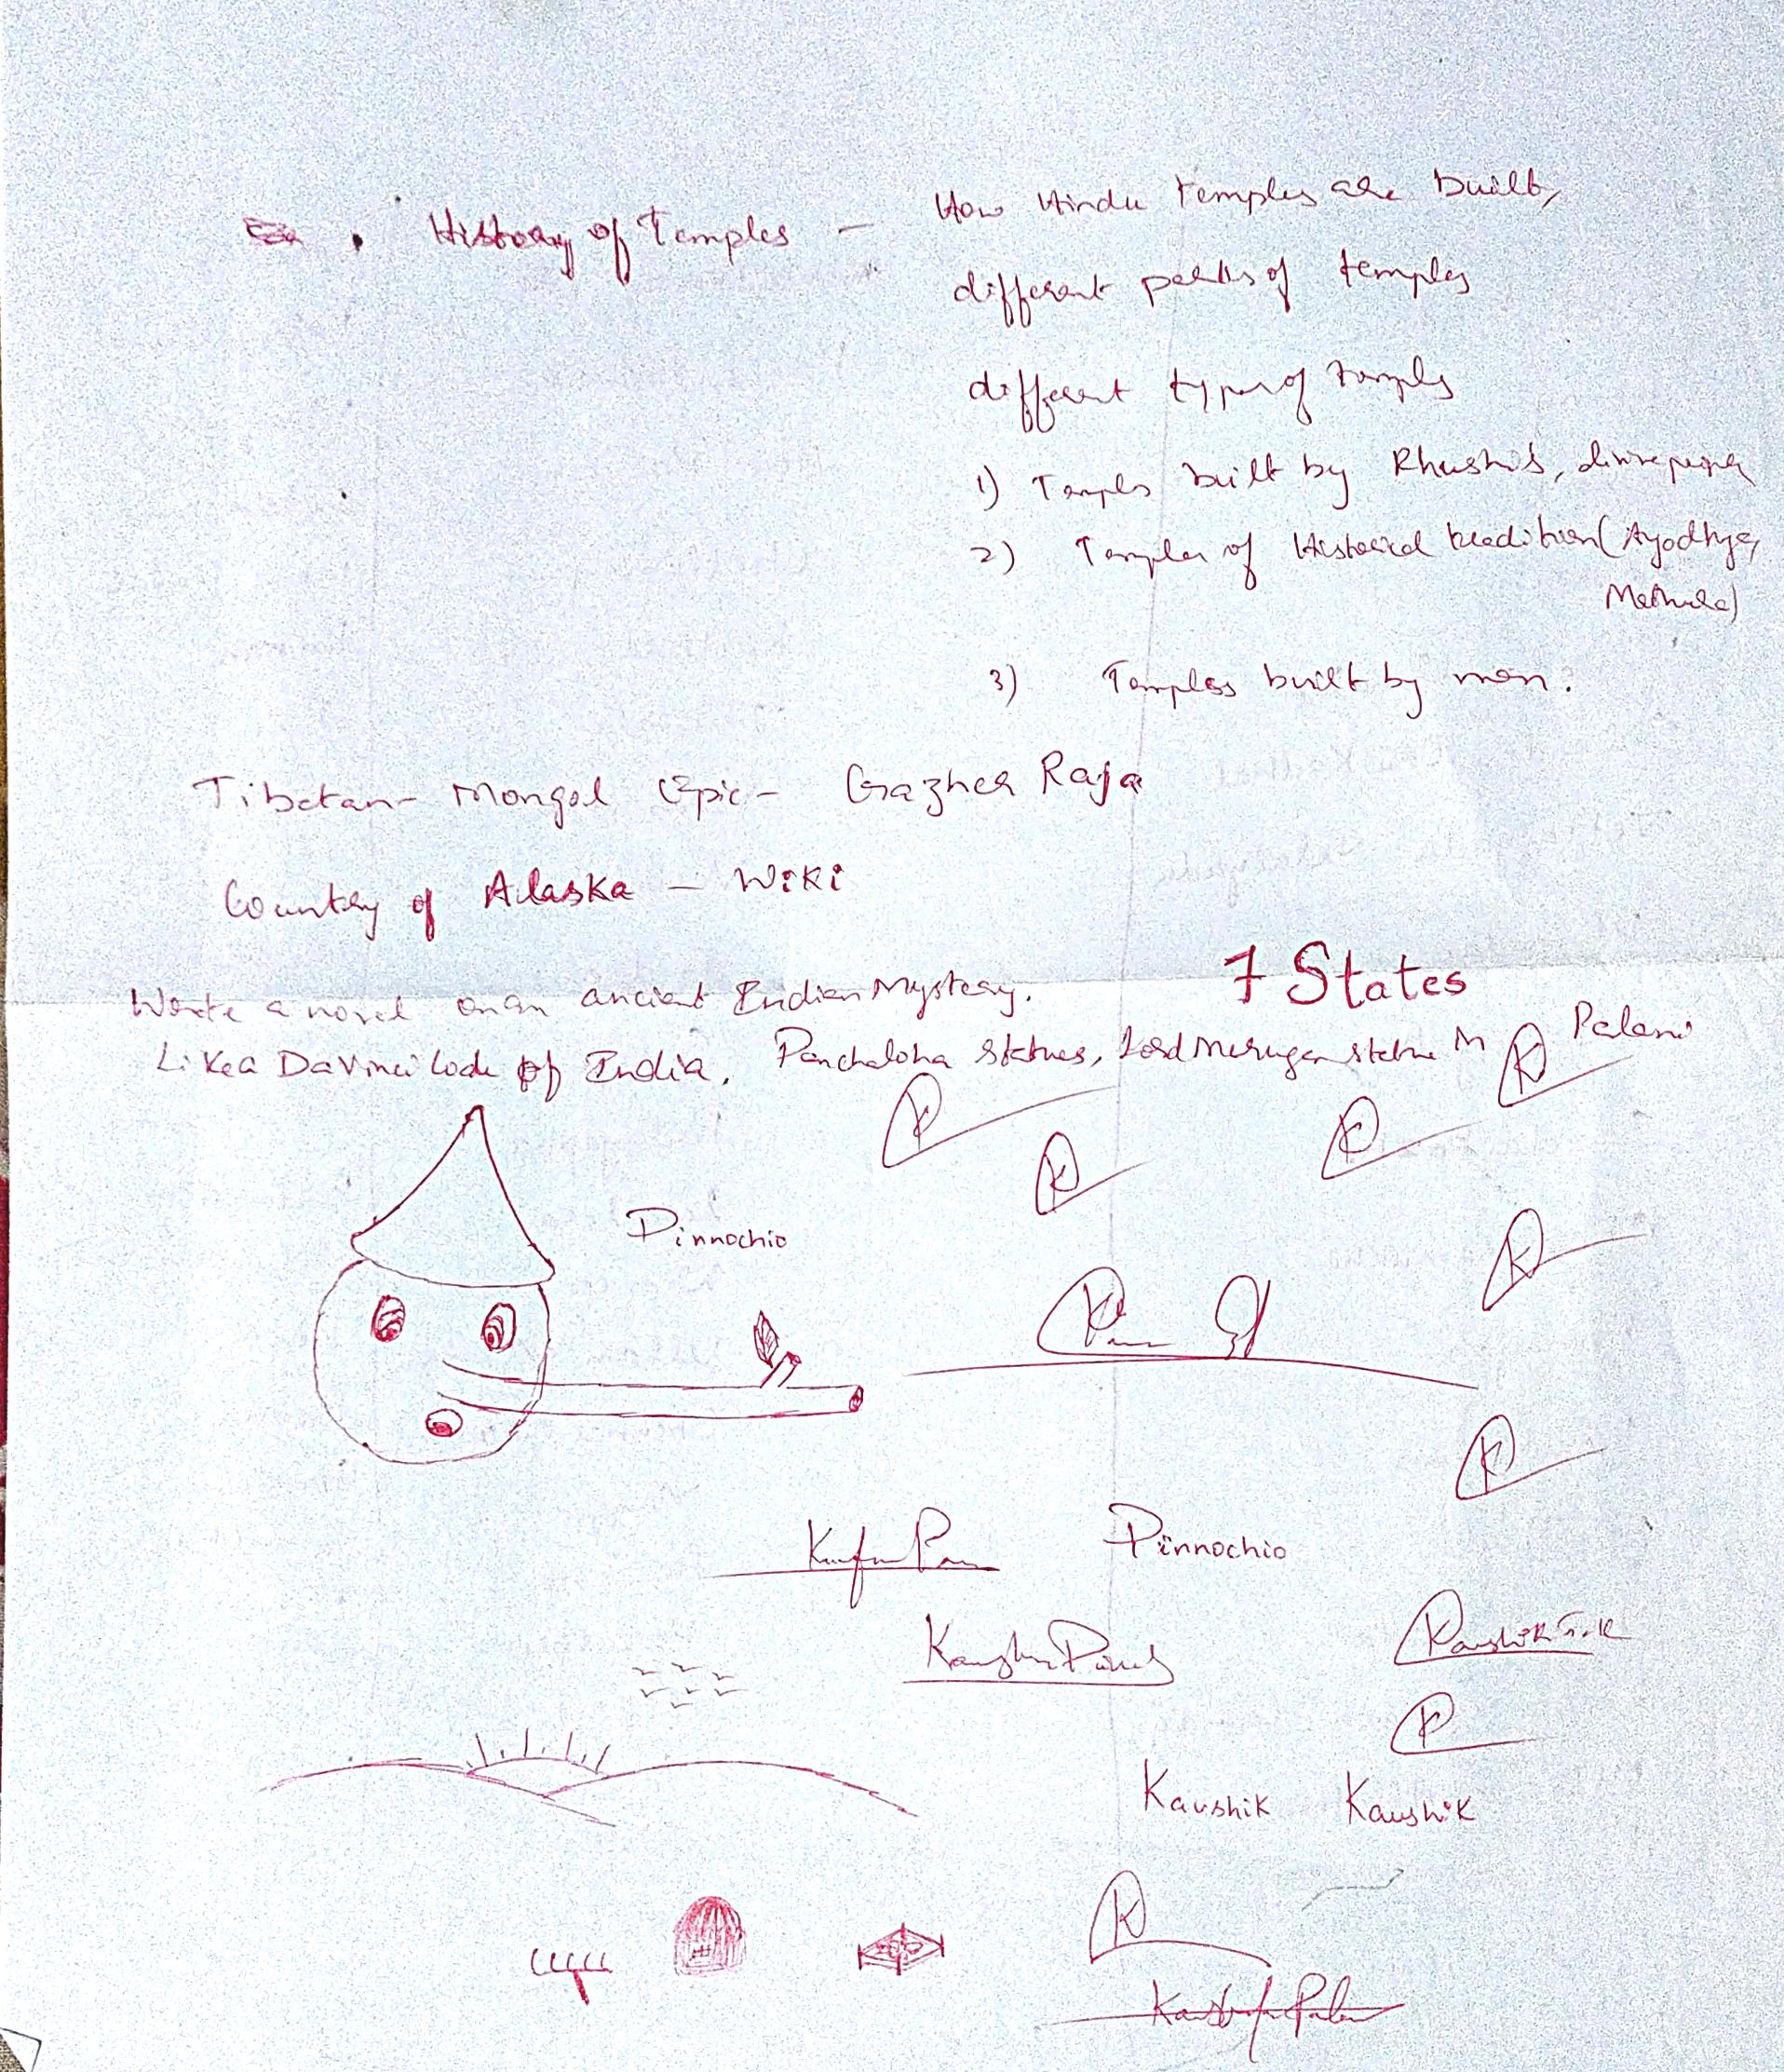 History of Temples - How Hindu temples are built,
different paths of temples
different types of temples
1) Temples built by Rhushis,
2) Temples of Historical tradition (Ayodhya,
Mathura)
3) Temples built by men.
Tibetan - Mongol Epic - Gazher Raja
Country of Alaska - Wiki
7 States
Wrote a novel on an ancient Indian Mystery.
Like a DaVinci Code of India. Panchaloha statues, Lord Murugan statue in Palani
K
K
K
K
Pinnochio
K
K
Pinnochio
Kaushik
K
Kaushik Kaushik
K